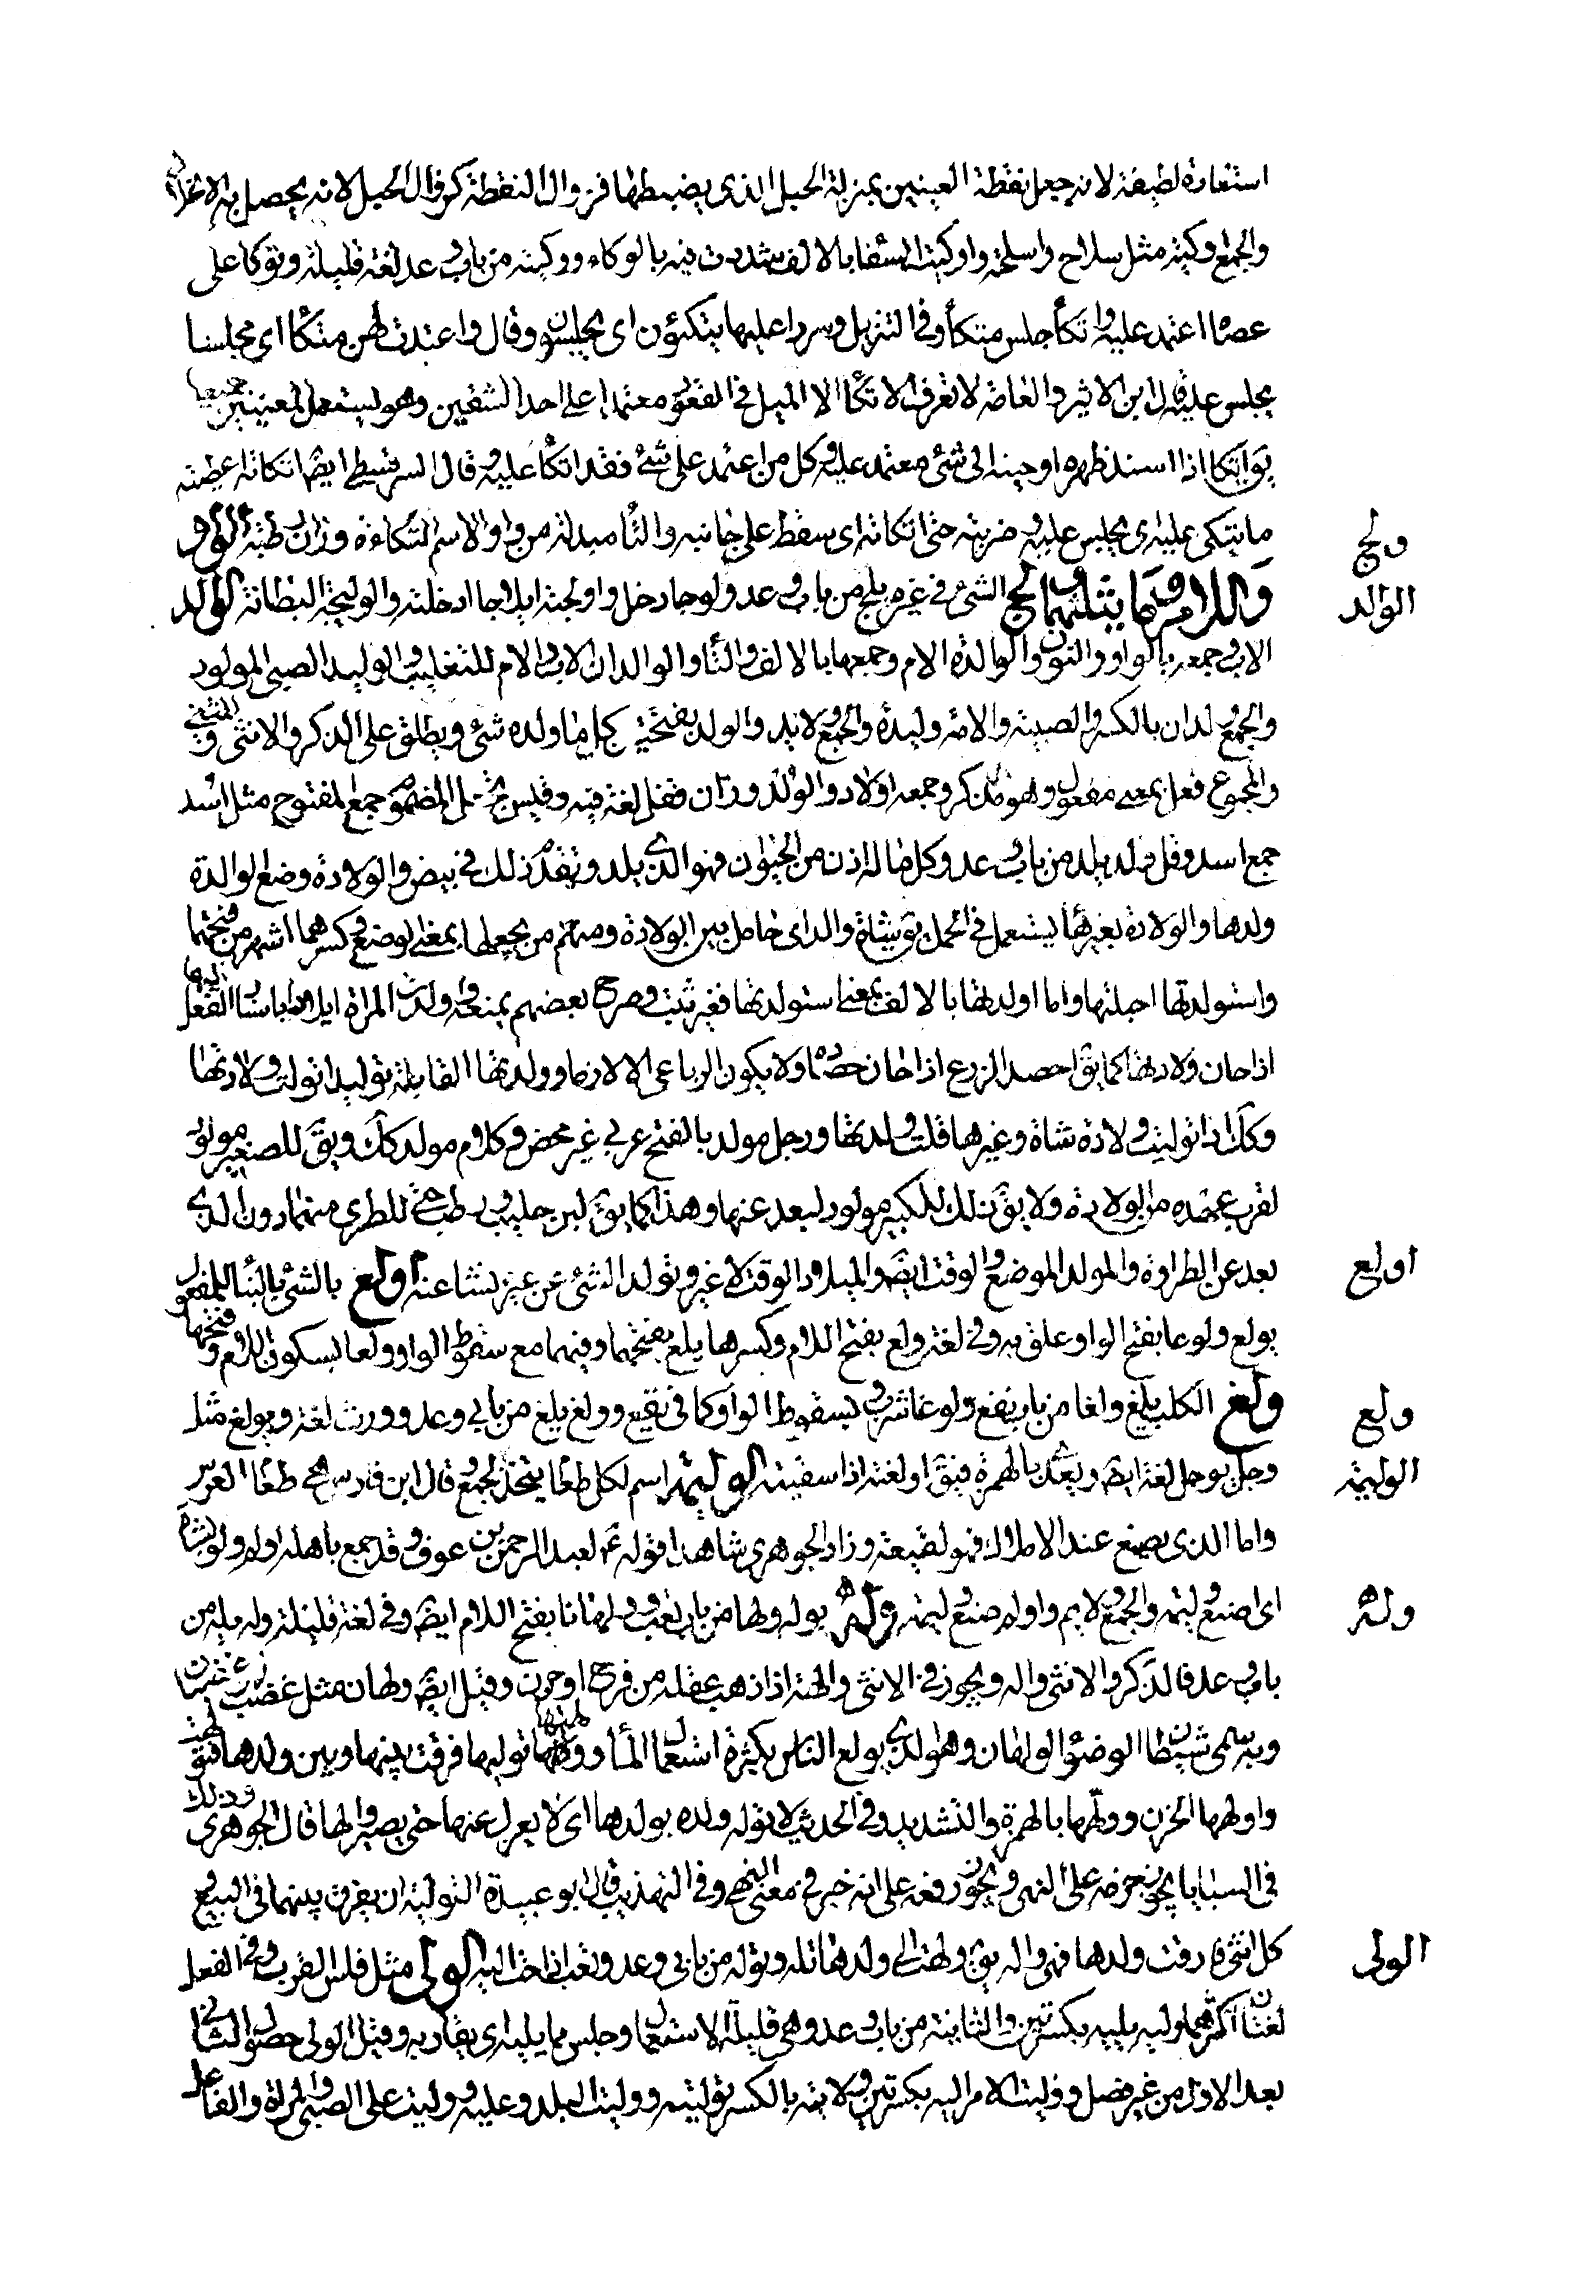 استعارة لطيفة لانه جعل يقظة العينين بمنزلة الحبل الذى يضبطها فزوال اليقظة كزوال الحبل لانه يحصل به الانحلال
والجمع اوكية مثل سلاح واسلحة واوكيت السقا بالالف شددت فيه بالوكاء ووكيته من باب وعد لغة قليلة وتوكا على
عصاا اعتمد عليها واتكأ جلس متكأ وفى التنزيل وسررا عليها يتكئون اى يجلسون وقال واعتدت لهن متكأ اى مجلسا
يجلس عليه قال ابن الاثير والعامة لا تعرف الاتكأ الا الميل فى القعود معتمدا على احد الشقين وهو يستعمل فى المعنيين جميعا
يق اتكا اذا اسند ظهره او جنبه الى شئ معتمدا عليه وكل من اعتمد على شئ فقد اتكأ عليه وقال السرقسطى ايضا اتكاته اعطيته
ما يتكى عليه اى يجلس عليه وضربته حتى اتكاته اى سقط على جانبه والتأ مبدلة من واو والاسم التكاءة وزان رطبة الواو
ولج
واللام وما يثلثهما ولج الشئ فى غيره يلج من باب وعد ولوجا دخل واولجته ايلاجا ادخلته والوليجة البطانة الوالد
الوالد
الاب وجمعه بالواو والنون والوالدة الام وجمعها بالالف والتأ والوالدان الاب والام للتغليب والوليد الصبى المولود
والجمع ولدان بالكسر والصبية والامة وليدة والجمع ولايد والولد بفتحتين كل ما ولده شئ ويطلق على الذكر والانثى والمثنى
والمجموع فعل بمعنى مفعول وهو مذكر وجمعه اولاد والولد وزان قفل لغة فيه وقيس تجعل المضموم جمع المفتوح مثل اسد
جمع اسد وقد ولد يلد من باب وعد وكل ما له اذن من الحيوان فهو الذى يلد وتقدم ذلك فى بيض والولادة وضع الوالدة
ولدها والولاد بغير هأ يستعمل فى الحمل يق شاة والد اى حامل بين الولادة ومنهم من يجعلها بمعنى الوضع وكسرهما اشهر من فتحهما
واستولدتها احبلتها واما اولدتها بالالف بمعنى استولدتها فغير ثبت وصرح بعضهم بمنعه واولدت المراة ايلادا باسناد الفعل اليها
اذا حان ولادها كما يق احصد الزرع اذا حان حصاده ولا يكون الرباعى الا لازما وولدتها القابلة توليدا تولت ولادتها
وكك اذا توليت ولادة شاة وغيرها قلت ولدتها ورجل مولد بالفتح عربى غير محض وكلام مولد كك ويق للصغير مولود
لقرب عهده من الولادة ولا يق ذلك للكبير مولود لبعد عنها وهذا كما يق لبن حليب ورطب جنى للطرى منهما دون الذى
بعد عن الطراوة والمولد الموضع والوقت ايضا والميلاد الوقت لا غير وتولد الشئ عن غيره نشا عنه اولع بالشئ بالبنأ للمفعول
اولع
يولع ولوعا بفتح الواو علق به وفى لغة ولع بفتح اللام وكسرها يلع بفتحها وفيهما مع سقوط الواو ولعا بسكون اللام وفتحها
ولغ الكلب يلغ ولغا من باب نفع ولوغا شرب بسقوط الواو كما فى يقع وولغ يلغ من بابى وعد وورث لغة ويولغ مثل
ولع
وجل يوجل لغة ايضا ويعدى بالهمزة فيق اولغته اذا سقيته الوليمة اسم لكل طعام يتخذ لجمع وقال ابن فارس هى طعام العرس
الوليمة
واما الذى يصنع عند الاملاك فهو النقيعة وزاد الجوهرى شاهدا قوله ع لعبد الرحمن بن عوف وقد جمع باهله اولم ولو بشاة
اى اصنع وليمة والجمع ولايم واولم صنع وليمة وله يوله ولها من باب تعب وولهانا بفتح اللام ايضا وفى لغة قليلة وله يله من
وله
باب وعد فالذكر والانثى واله ويجوز فى الانثى والهة اذا ذهب عقله من فرح او حزن وقيل ايضا ولهان مثل غضب فهو غضبان
وبه سمى شيطان الوضؤ الولهان وهو الذى يولع الناس بكثرة استعمال المأ وولهتها توليها فرقت بينها وبين ولدها فتولهت
واولهها الحزن وولهها بالهمزة والتشديد وفى الحديث لا توله والدة بولدها اى لا يعزل عنها حتى يصير والها قال الجوهرى وذلك
فى السبايا يجوز جزمه على النهى ويجوز رفعه على انه خبر فى معنى النهى وفى التهذيب قال ابو عبيدة التولية ان يفرق بينهما فى البيع
كل انثى فارقت ولدها فهى واله يق ولهت الى ولدها تله وتوله من بابى وعد وتعب اذا حنت اليه الولى مثل فلس القرب وفى الفعل
الولى
لغتان اكثرهما وليه يليه بكسرتين والثانية من باب وعد وهى قليلة الاستعمال وجلس مما يليه اى يقاربه وقيل الولى حصول الثانى
بعد الاول من غير فصل ووليت الامر اليه بكسرتين ولاية بالكسر توليته ووليت البلد وعليه ووليت على الصبى والمراة والفاعل